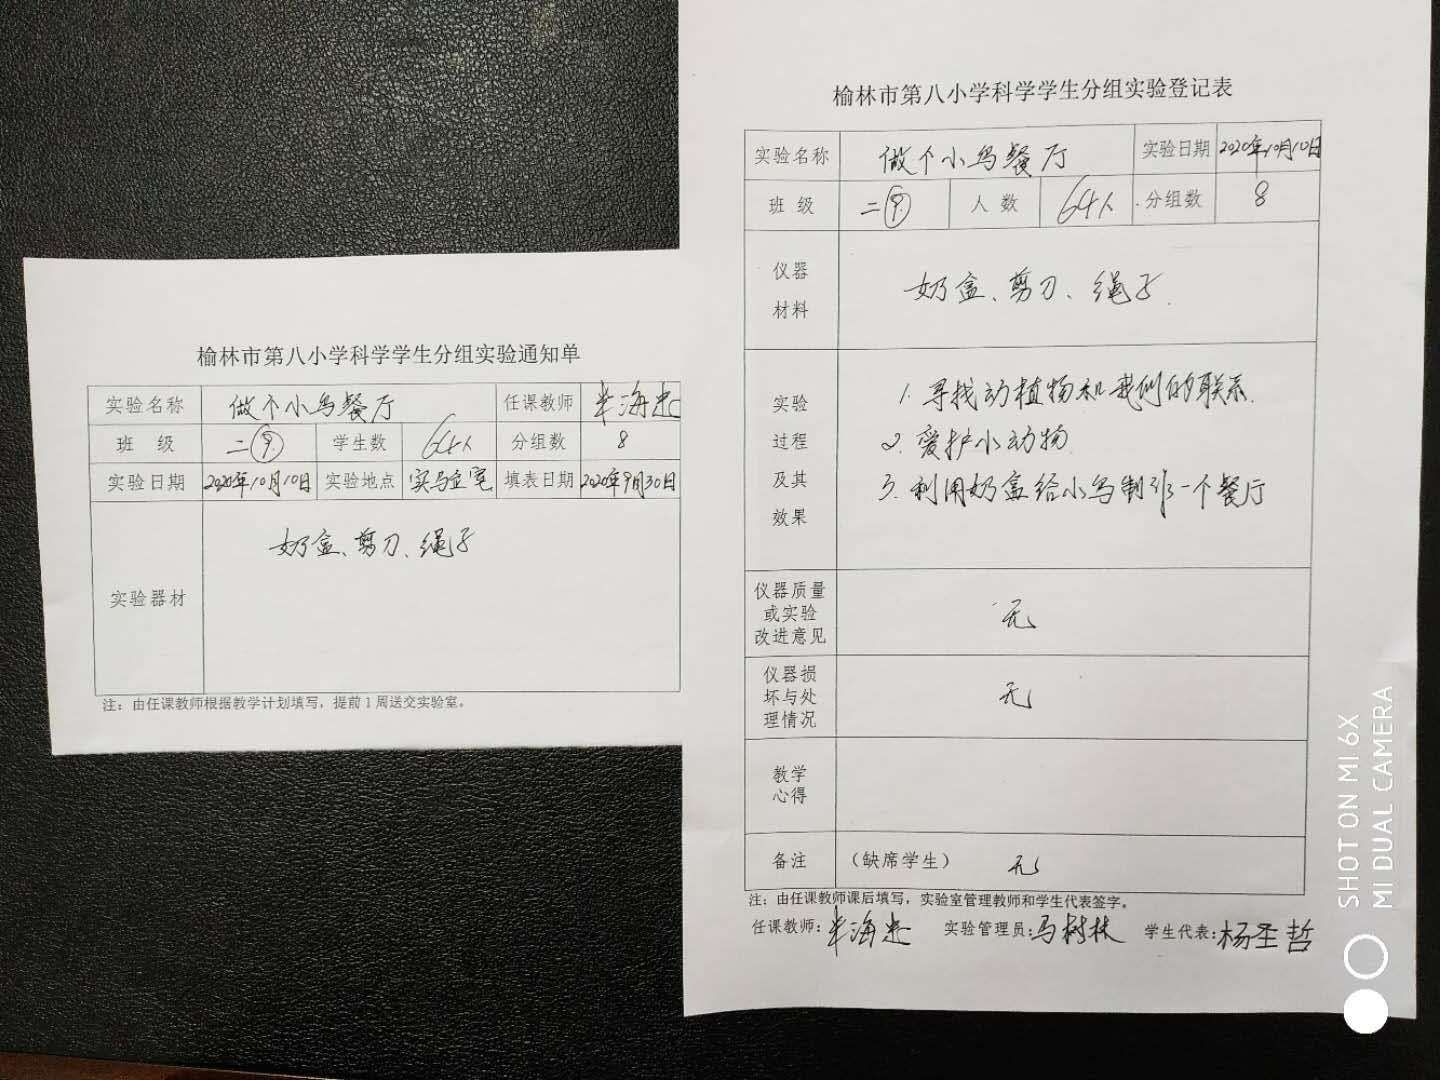 榆林市第八小学科学学生分组实验通知单
实验名称 做个小鸟餐厅 任课教师
班 级 二⑨ 学生数 64人 分组数 8
实验日期 2020年10月10日 实验地点 实验室 填表日期 2020年9月30日
实验器材 奶盒、剪刀、绳子
注：由任课教师根据教学计划填写，提前1周送交实验室。
榆林市第八小学科学学生分组实验登记表
实验名称 做个小鸟餐厅 实验日期 2020年10月10日
班 级 二⑨ 人 数 64人 分组数 8
仪器
材料
奶盒、剪刀、绳子.
实验
过程
及其
效果
1. 寻找动植物和我们的联系.
2. 爱护小动物.
3. 利用奶盒给小鸟制作一个餐厅
仪器质量
或实验
改进意见
无
仪器损
坏与处
理情况
无
教学
心得
备注 （缺席学生） 无
注：由任课教师课后填写，实验室管理教师和学生代表签字。
任课教师： 实验管理员：马树林 学生代表：杨圣哲
SHOT ON MI 6X
MI DUAL CAMERA